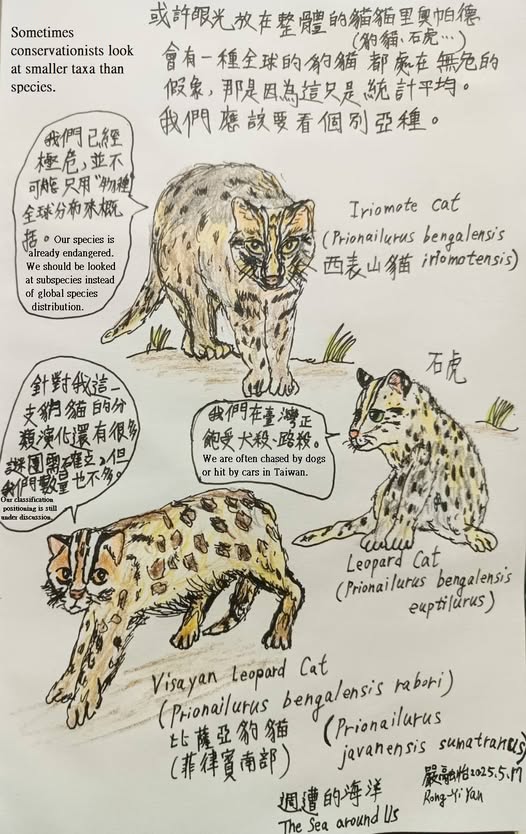 Sometimes
conservationists look
at smaller taxa than
species.
或許眼光放在整體的貓貓里奧帕德
(豹貓、石虎…)
會有一種全球的豹貓都處在無危的
假象，那是因為這只是統計平均。
我們應該要看個別亞種。
我們已經
極危，並不
可能只用"物種"
全球分布來概
括。
Our species is
already endangered.
We should be looked
at subspecies instead
of global species
distribution.
Iriomote cat
(Prionailurus bengalensis
西表山貓 iriomotensis)
石虎
我們在臺灣正
飽受犬殺、路殺。
We are often chased by dogs
or hit by cars in Taiwan.
Leopard Cat
(Prionailurus bengalensis
euptilurus)
針對我這一
支豹貓的分
類演化還有很多
謎團需確立，但
我們數量也不多。
Our classification
positioning is still
under discussion.
Visayan Leopard Cat
(Prionailurus bengalensis rabori)
比薩亞豹貓
(菲律賓南部)
(Prionailurus
javanensis sumatranus)
週遭的海洋
The Sea around Us
嚴融怡2025.5.17
Rong-Yi Yan